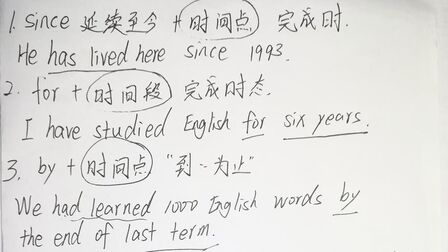 1. since 延续至今 + 时间点 完成时.
He has lived here since 1993.
2. for + 时间段 完成时态.
I have studied English for six years.
3. by + 时间点 "到··为止"
We had learned 1000 English words by
the end of last term.